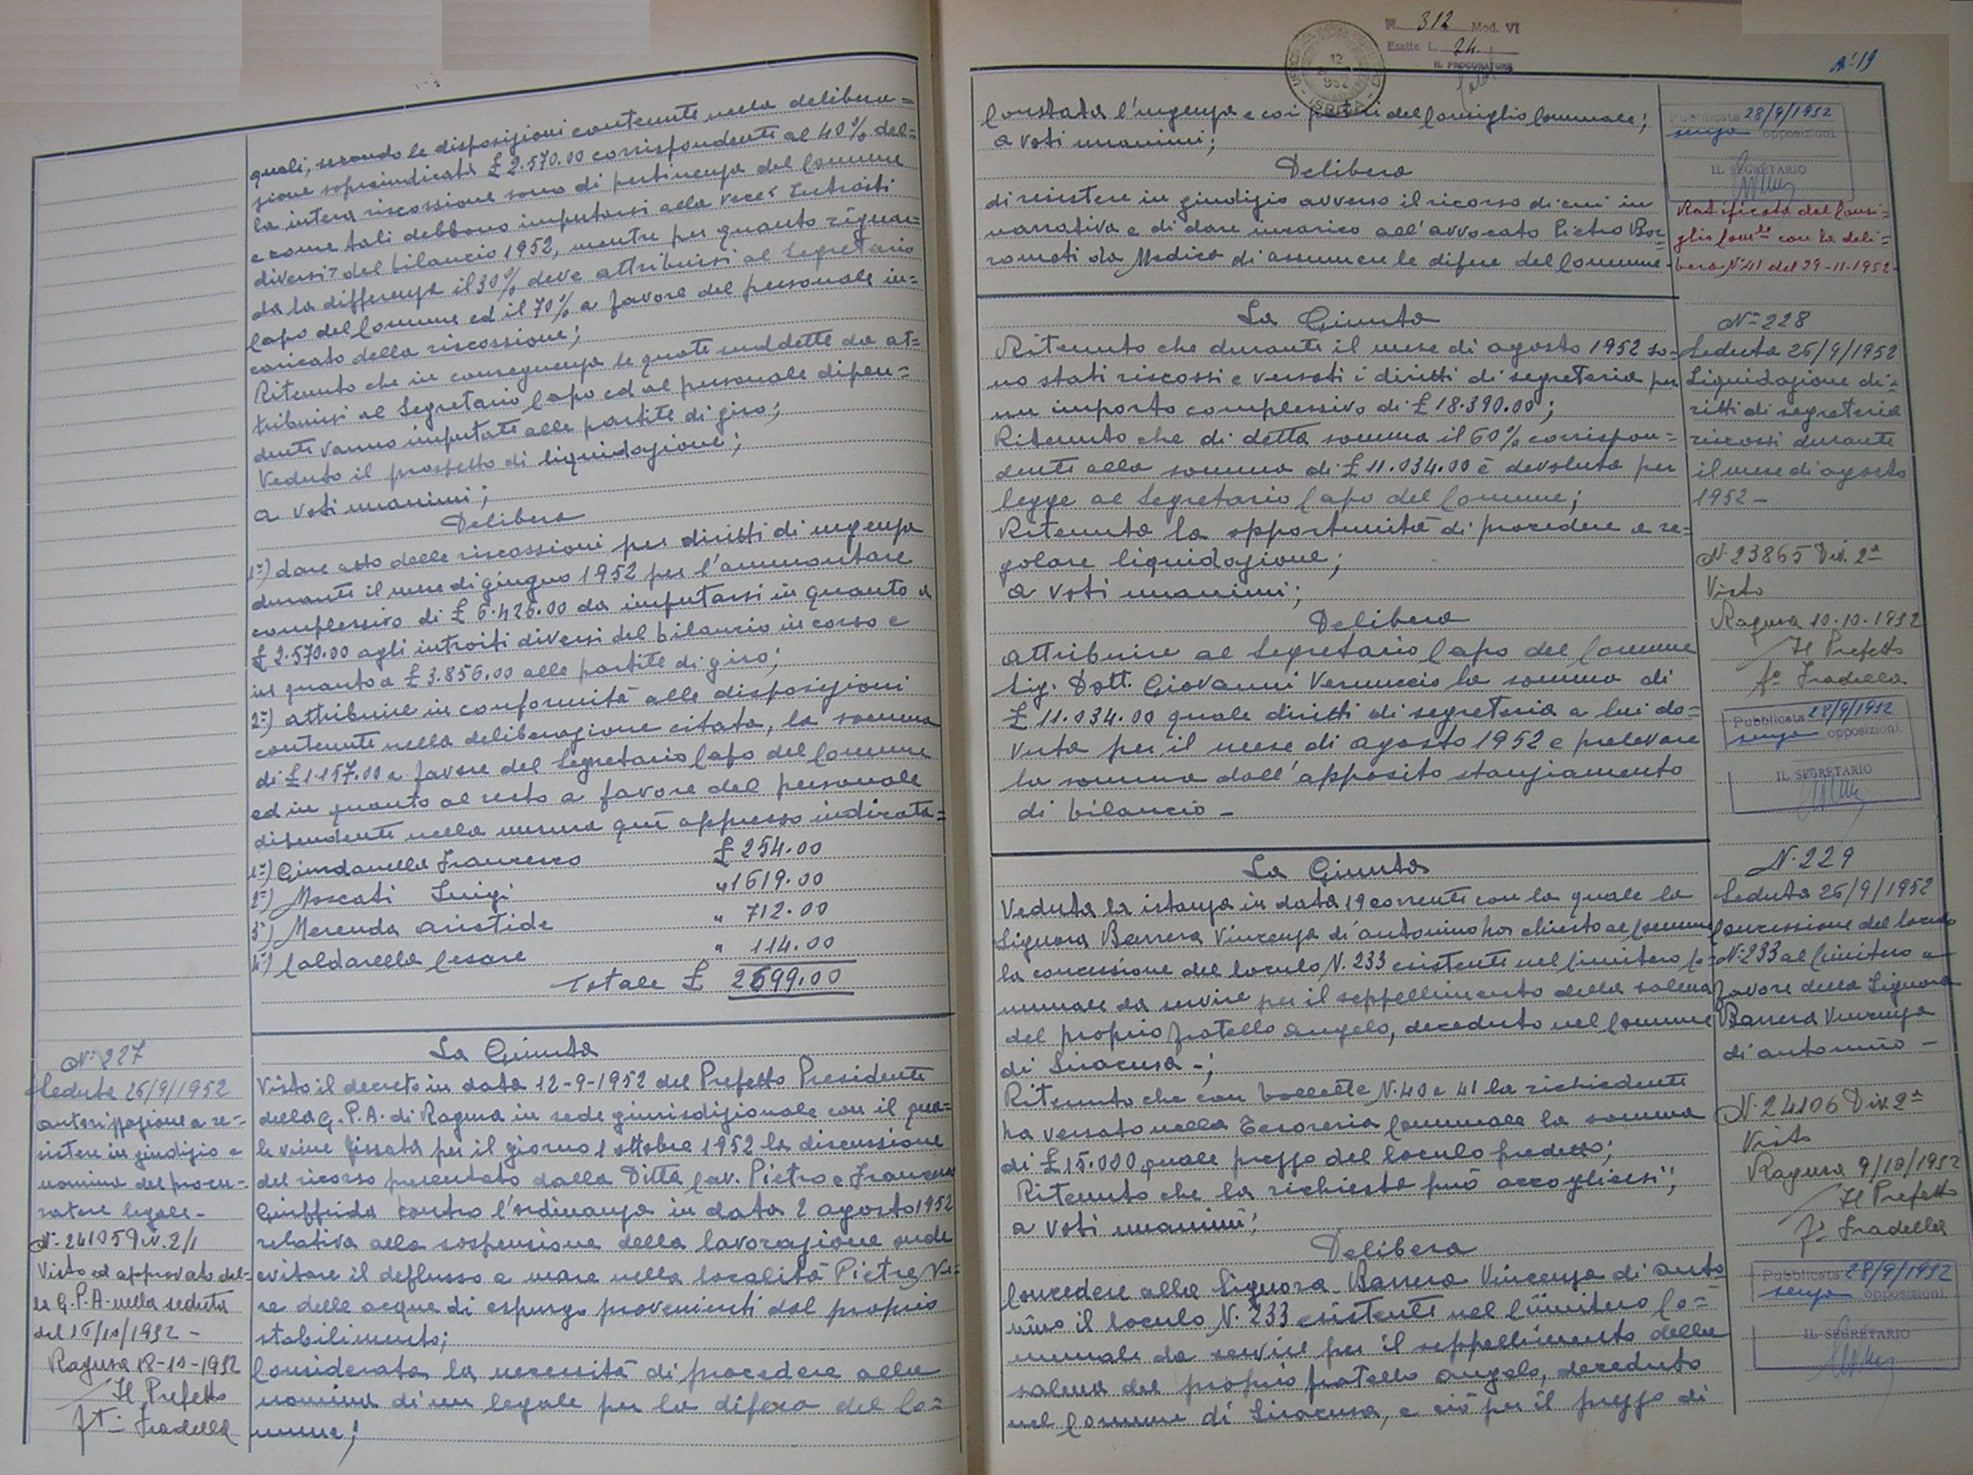 quali, secondo le disposizioni contenute nella delibera=
zione sopraindicata £ 2.570.00 corrispondenti al 40% del=
la intera riscossione sono di pertinenza del Comune
e come tali debbono imputarsi alla voce "Introiti
diversi" del bilancio 1952, mentre per quanto riguar=
da la differenza il 30% deve attribuirsi al Segretario
Capo del Comune ed il 70% a favore del personale in=
caricato della riscossione;
Ritenuto che in conseguenza le quote suddette da at=
tribuirsi al Segretario Capo ed al personale dipen=
dente vanno imputate alle partite di giro;
Veduto il prospetto di liquidazione;
a voti unanimi;
Delibera
1°) dare atto delle riscossioni per diritti di urgenza
durante il mese di giugno 1952 per l'ammontare
complessivo di £ 6.426.00 da imputarsi in quanto a
£ 2.570.00 agli introiti diversi del bilancio in corso e
in quanto a £ 3.856.00 alle partite di giro;
2°) attribuire in conformità alle disposizioni
contenute nella deliberazione citata, la somma
di £ 1.157.00 a favore del Segretario Capo del Comune
ed in quanto al resto a favore del personale
dipendente nella misura qui appresso indicata=
1°) Giurdanella Francesco £ 254.00
2°) Moscati Luigi " 1619.00
3°) Merenda Aristide " 712.00
4°) Caldarella Cesare " 114.00
Totale £ 2699.00
N° 227
Seduta 26/9/1952
Autorizzazione a re=
sistere in giudizio e
nomina del procu=
ratore legale-
N° 24105 Div. 2/1
Visto ed approvato dal=
la G.P.A. nella seduta
del 16/10/1952 -
Ragusa 18-10-1952
Il Prefetto
f.to Fradella
La Giunta
Visto il decreto in data 12-9-1952 del Prefetto Presidente
della G.P.A. di Ragusa in sede giurisdizionale con il qua=
le viene fissata per il giorno 1 ottobre 1952 la discussione
del ricorso presentato dalla Ditta Cav. Pietro e Francesco
Giuffrida contro l'ordinanza in data 2 agosto 1952
relativa alla sospensione della lavorazione onde
evitare il deflusso a mare nella località Pietre Ne=
re delle acque di espurgo provenienti dal proprio
stabilimento;
Considerata la necessità di procedere alla
nomina di un legale per la difesa del Co=
mune;
N. 312 Mod. VI
Esatte L. 24
IL PROCURATORE
N° 19
Constatata l'urgenza e coi poteri del Consiglio Comunale;
a voti unanimi;
Delibera
di resistere in giudizio avverso il ricorso di cui in
narrativa e di dare incarico all'avvocato Pietro Bor=
rometi da Modica di assumere le difese del Comune-
Pubblicata 28/9/1952
senza opposizioni.
IL SEGRETARIO
Ratificata dal Consi=
glio Com.le con la deli=
bera N. 41 del 29-11-1952-
La Giunta
Ritenuto che durante il mese di agosto 1952 so=
no stati riscossi e versati i diritti di segreteria per
un importo complessivo di £ 18.390.00;
Ritenuto che di detta somma il 60% corrispon=
dente alla somma di £ 11.034.00 è devoluta per
legge al Segretario Capo del Comune;
Ritenuta la opportunità di procedere a re=
golare liquidazione;
a voti unanimi;
Delibera
attribuire al Segretario Capo del Comune
Sig. Dott. Giovanni Vernuccio la somma di
£ 11.034.00 quale diritti di segreteria a lui do=
vuta per il mese di agosto 1952 e prelevare
la somma dall'apposito stanziamento
di bilancio -
N° 228
Seduta 26/9/1952
Liquidazione di=
ritti di segreteria
riscossi durante
il mese di agosto
1952 -
N. 23865 Div. 2ª
Visto
Ragusa 10-10-1952
Il Prefetto
f.to Fradella
Pubblicata 28/9/1952
senza opposizioni.
IL SEGRETARIO
La Giunta
Veduta la istanza in data 19 corrente con la quale la
Signora Barrera Vincenza di Antonino ha chiesto al Comune
la concessione del loculo N. 233 esistente nel Cimitero Co=
munale da servire per il seppellimento della salma
del proprio fratello Angelo, deceduto nel Comune
di Siracusa -;
Ritenuto che con bollette N. 40 e 41 la richiedente
ha versato nella Tesoreria Comunale la somma
di £ 15.000 quale prezzo del loculo predetto;
Ritenuto che la richiesta può accogliersi;
a voti unanimi;
Delibera
Concedere alla Signora Barrera Vincenza di Anto
nino il loculo N. 233 esistente nel Cimitero Co=
munale da servire per il seppellimento della
salma del proprio fratello Angelo, deceduto
nel Comune di Siracusa, e ciò per il prezzo di
N. 229
Seduta 26/9/1952
Concessione del loculo
N. 233 al Cimitero a
favore della Signora
Barrera Vincenza
di Antonino -
N. 24106 Div. 2ª
Visto
Ragusa 9/10/1952
Il Prefetto
f.to Fradella
Pubblicata 28/9/1952
senza opposizioni.
IL SEGRETARIO